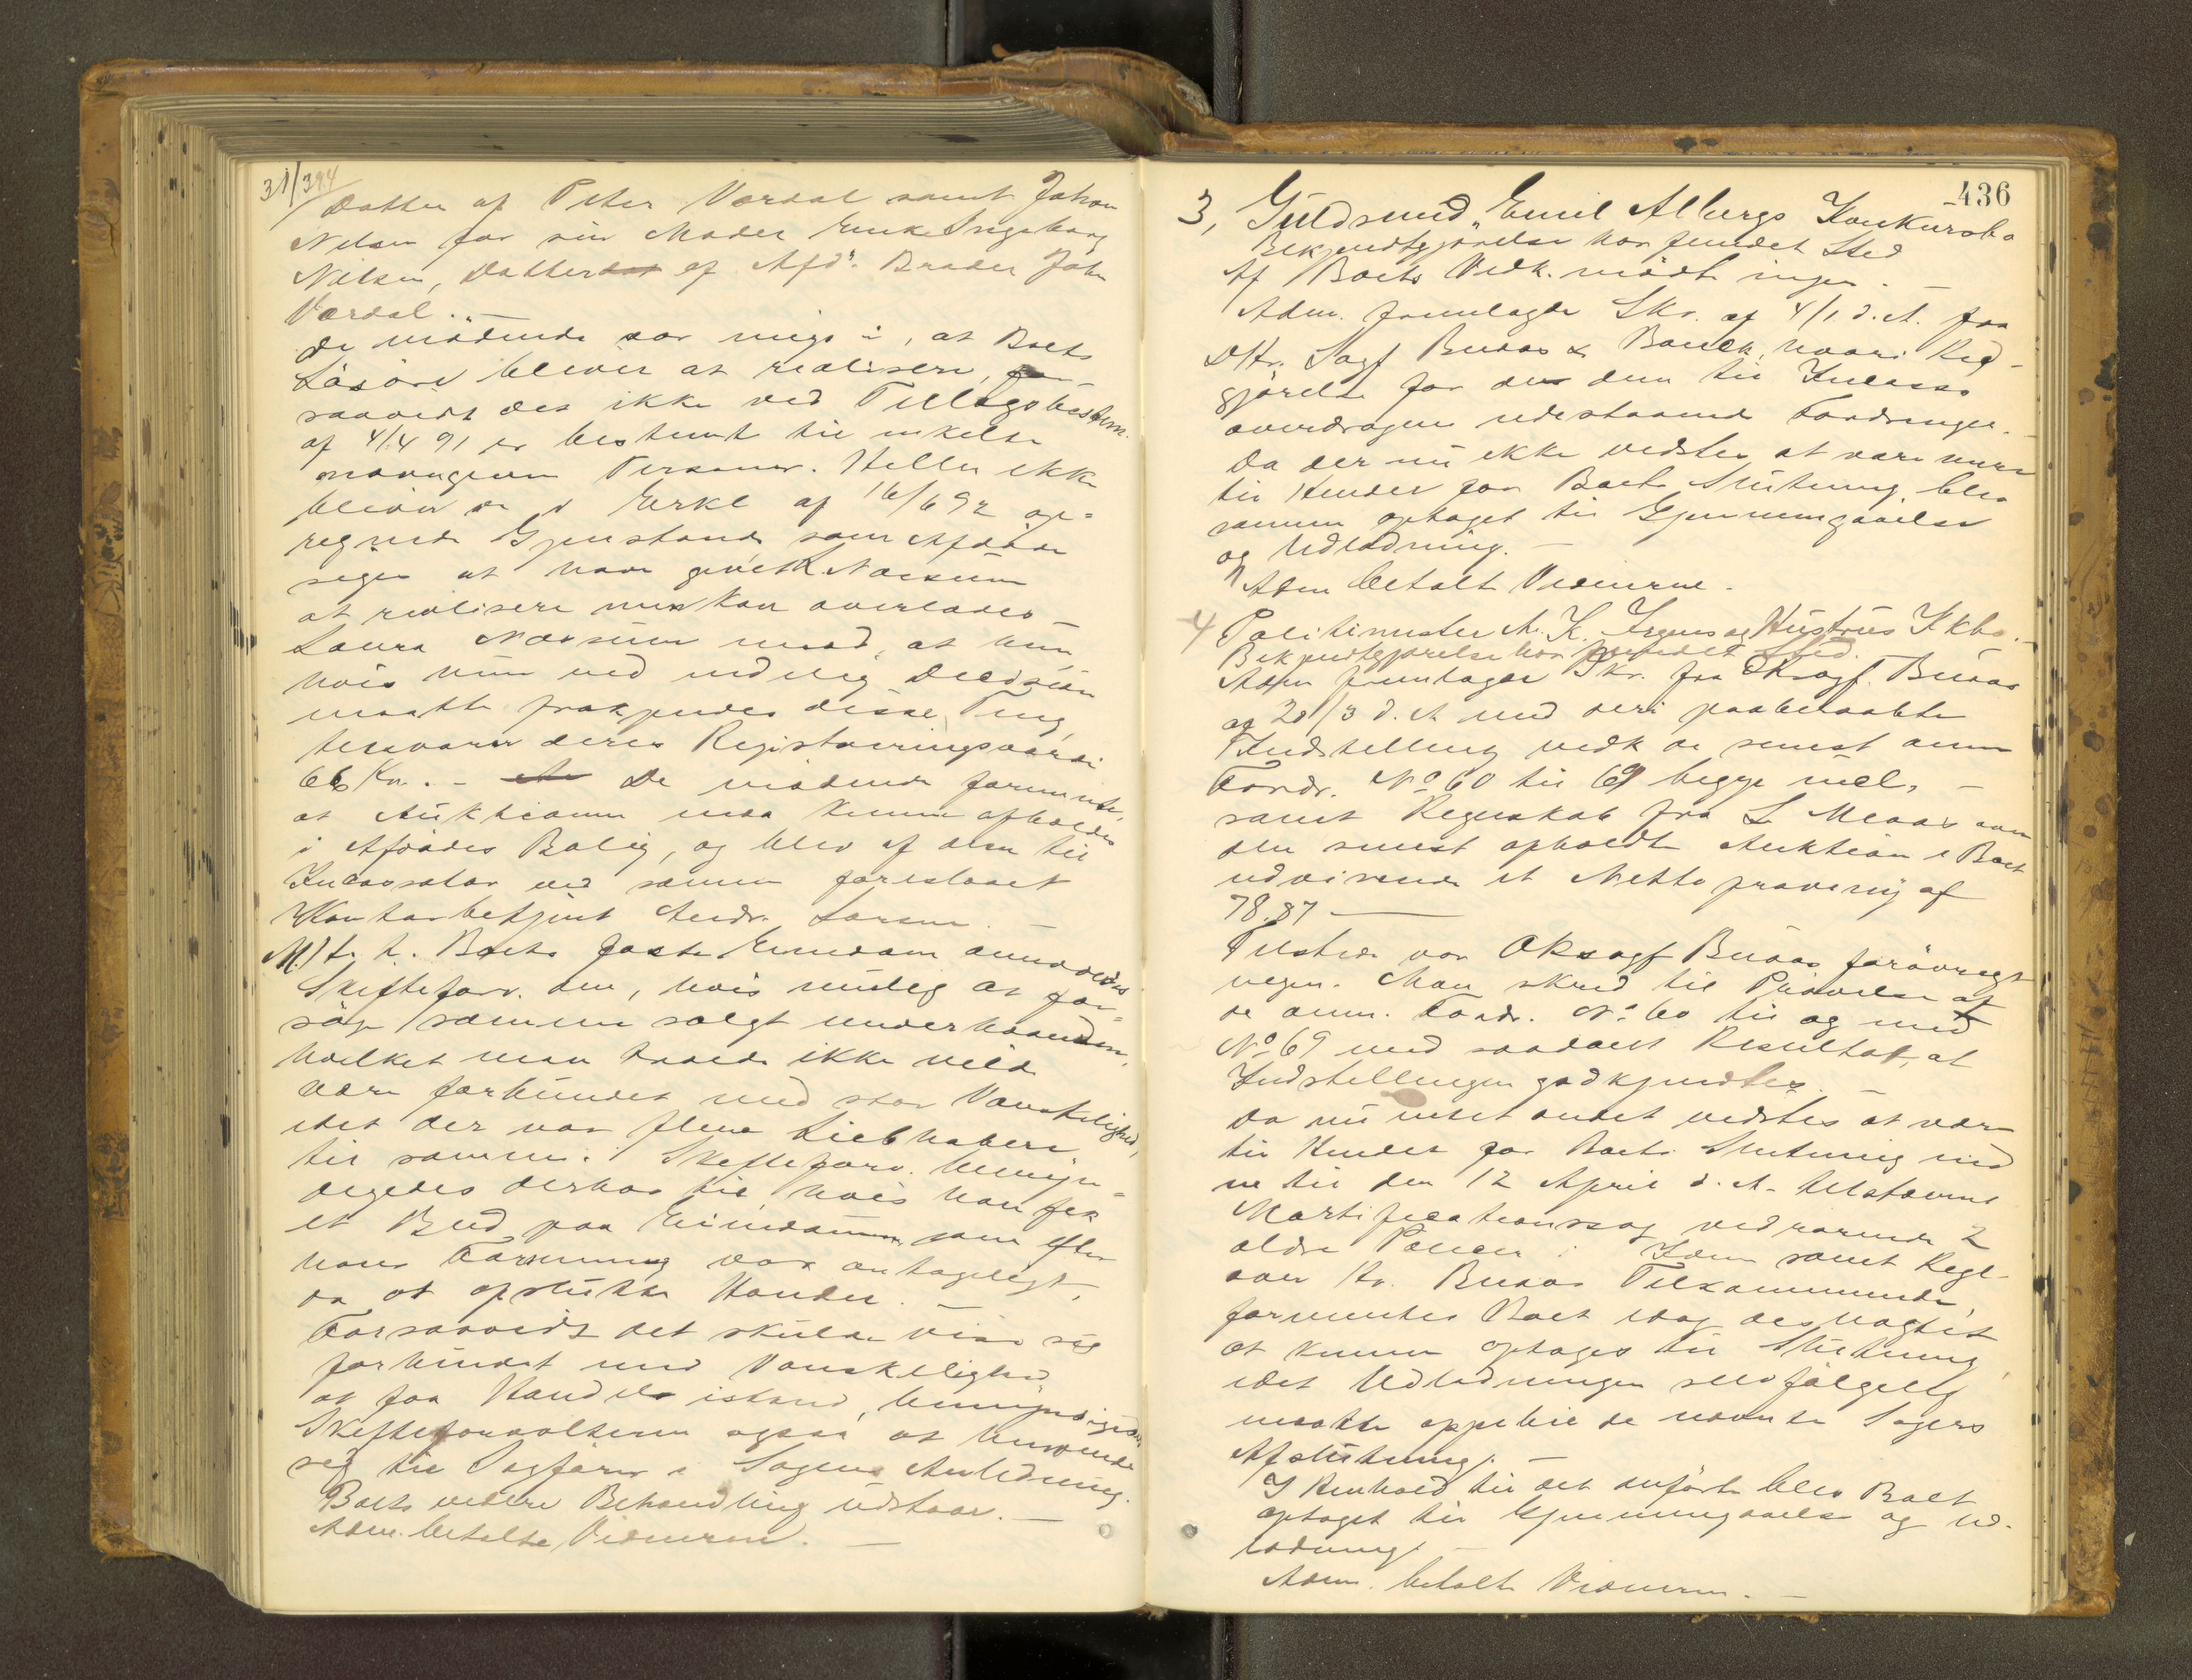 31/3 94
Datter af Peter Værdal samt Johan
Nilsen for sin Moder Enke Ingeborg
Nilsen, Datter af Afd's Broder John
Værdal. —
De mødende var enige i, at Boets
Løsøre bliver at realisere, for-
saavidt det ikke ved Tillægsbestem.
af 4/4 91 er bestemt til enkelte
navngivne Personer. Heller ikke
bliver de i Erkl af 16/6 92 op-
regnede Gjenstande som Afdøde
siges at have givet L. Næssum
at realisere men kan overlades
Laura Næssum mod, at hun,
hvis hun ved endelig Decision
maatte frakjendes disse Ting,
tilsvarer deres Registreringsværdi
66 Kr. — De mødende formente,
at Auktionen maa kunne afholdes
i Afdødes Bolig, og blev af dem til
Incassator ved samme foreslaaet
Kontorbetjent Andr. Larsen.
M. H. t. Boets faste Eiendom anmodedes
Skifteforv. om, hvis mulig at for-
søge samme solgt underhaanden,
hvilket man troede ikke vilde
være forbundet med stor Vanskelighed,
idet der var flere Liebhabere
til samme. Skifteforv. bemyn-
digedes derhos til, hvis han fik
et Bud paa Eiendommen, som efter
hans Formening var antageligt,
da at afslutte Handel. —
Forsaavidt det skulde vise sig
forbundet med Vanskelighed
at faa Handel istand, bemyndigedes
Skifteforvalteren ogsaa at henvende
sig til Sagfører i Sagens Anledning.
Boets videre Behandling udstaar. —
Adm. betalte Vidnerne. —
436
3, Guldsmed Emil Albergs Konkursbo
Bekjendtgjørelse har fundet Sted
Af Boets Vedk. mødte ingen. —
Adm. fremlagde Skr. af 4/1 d. A. fra
Sagf Buaas & Bauck, hvori Red-
gjørelse for de dem til Incasso
overdragne udestaaende Fordringer.
Da der nu ikke vidstes at være mere
til Hinder for Boets Slutning, blev
samme optaget til Gjennemgaaelse
og Udlodning. —
Adm betalt Vidnerne.
4 Politimester A. K. Irgens og Hustrus Kkbo. —
Bekjendtgjørelse har fundet Sted.
Adm fremlagde Skr. fra Buaas
af 20/3 d. A med deri paaberaabte
Indstilling vedk de senest anm
Fordr. No 60 til 69 begge incl. —
samt Regnskab fra L. om
den senest afholdte Auktion i Boet
udvisende et Netto proveny af
78.87 —
Tilstede var Buaas forøvrigt
ingen. Man skred til Prøvelse af
de anm. Fordr. No 60 til og med
No 69 med saadant Resultat, at
Indstillingen godkjendtes. —
Da nu intet andet vidstes at være
til Hinder for Boets Slutning end
en til den 12 April d. A. tilstævnt
Mortifikationssag vedrørende 2
ældre samt Regl
over Hr. Buaas Tilkommende,
formentes Boet idag desuagtet
at kunne optages til Slutning,
idet Udlodningen selvfølgelig
maatte oppebie de nævnte Sagers
Afslutning. —
I Henhold til det anførte blev Boet
optaget til Gjennemgaaelse og Ud-
lodning. —
Adm. betalte Vidnerne. —